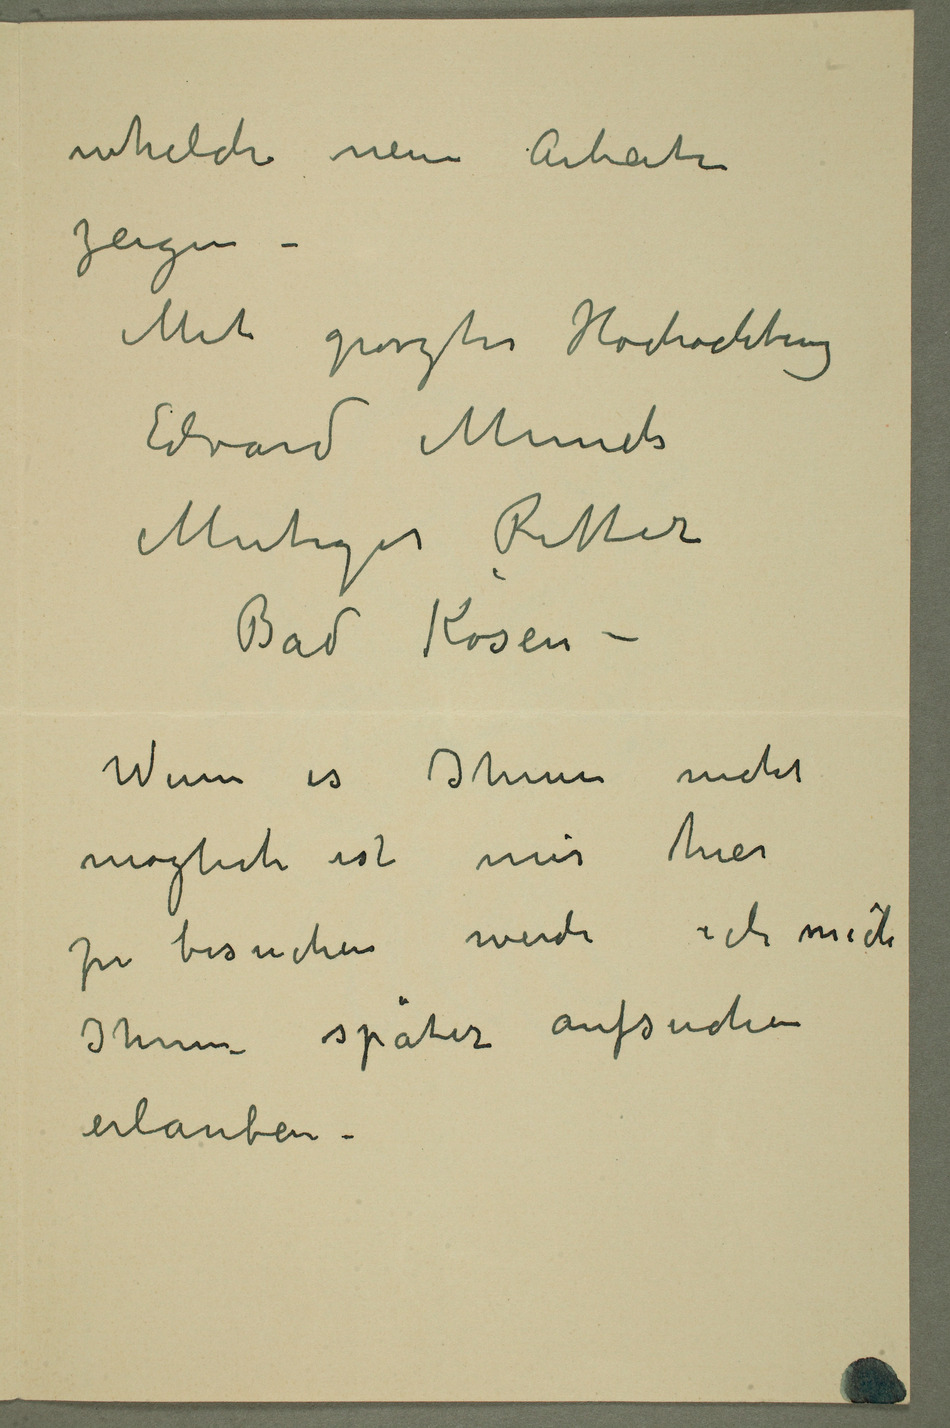 whelche neue Arbeiten
zeigen –
Mit groszter Hochachtung
Edvard Munch
Mutiger Ritter
Bad Kösen –
Wenn es Ihnen nicht
moglich ist mir hier
zu besuchen werde ich mich
Ihnen später aufsuchen
erlauben –